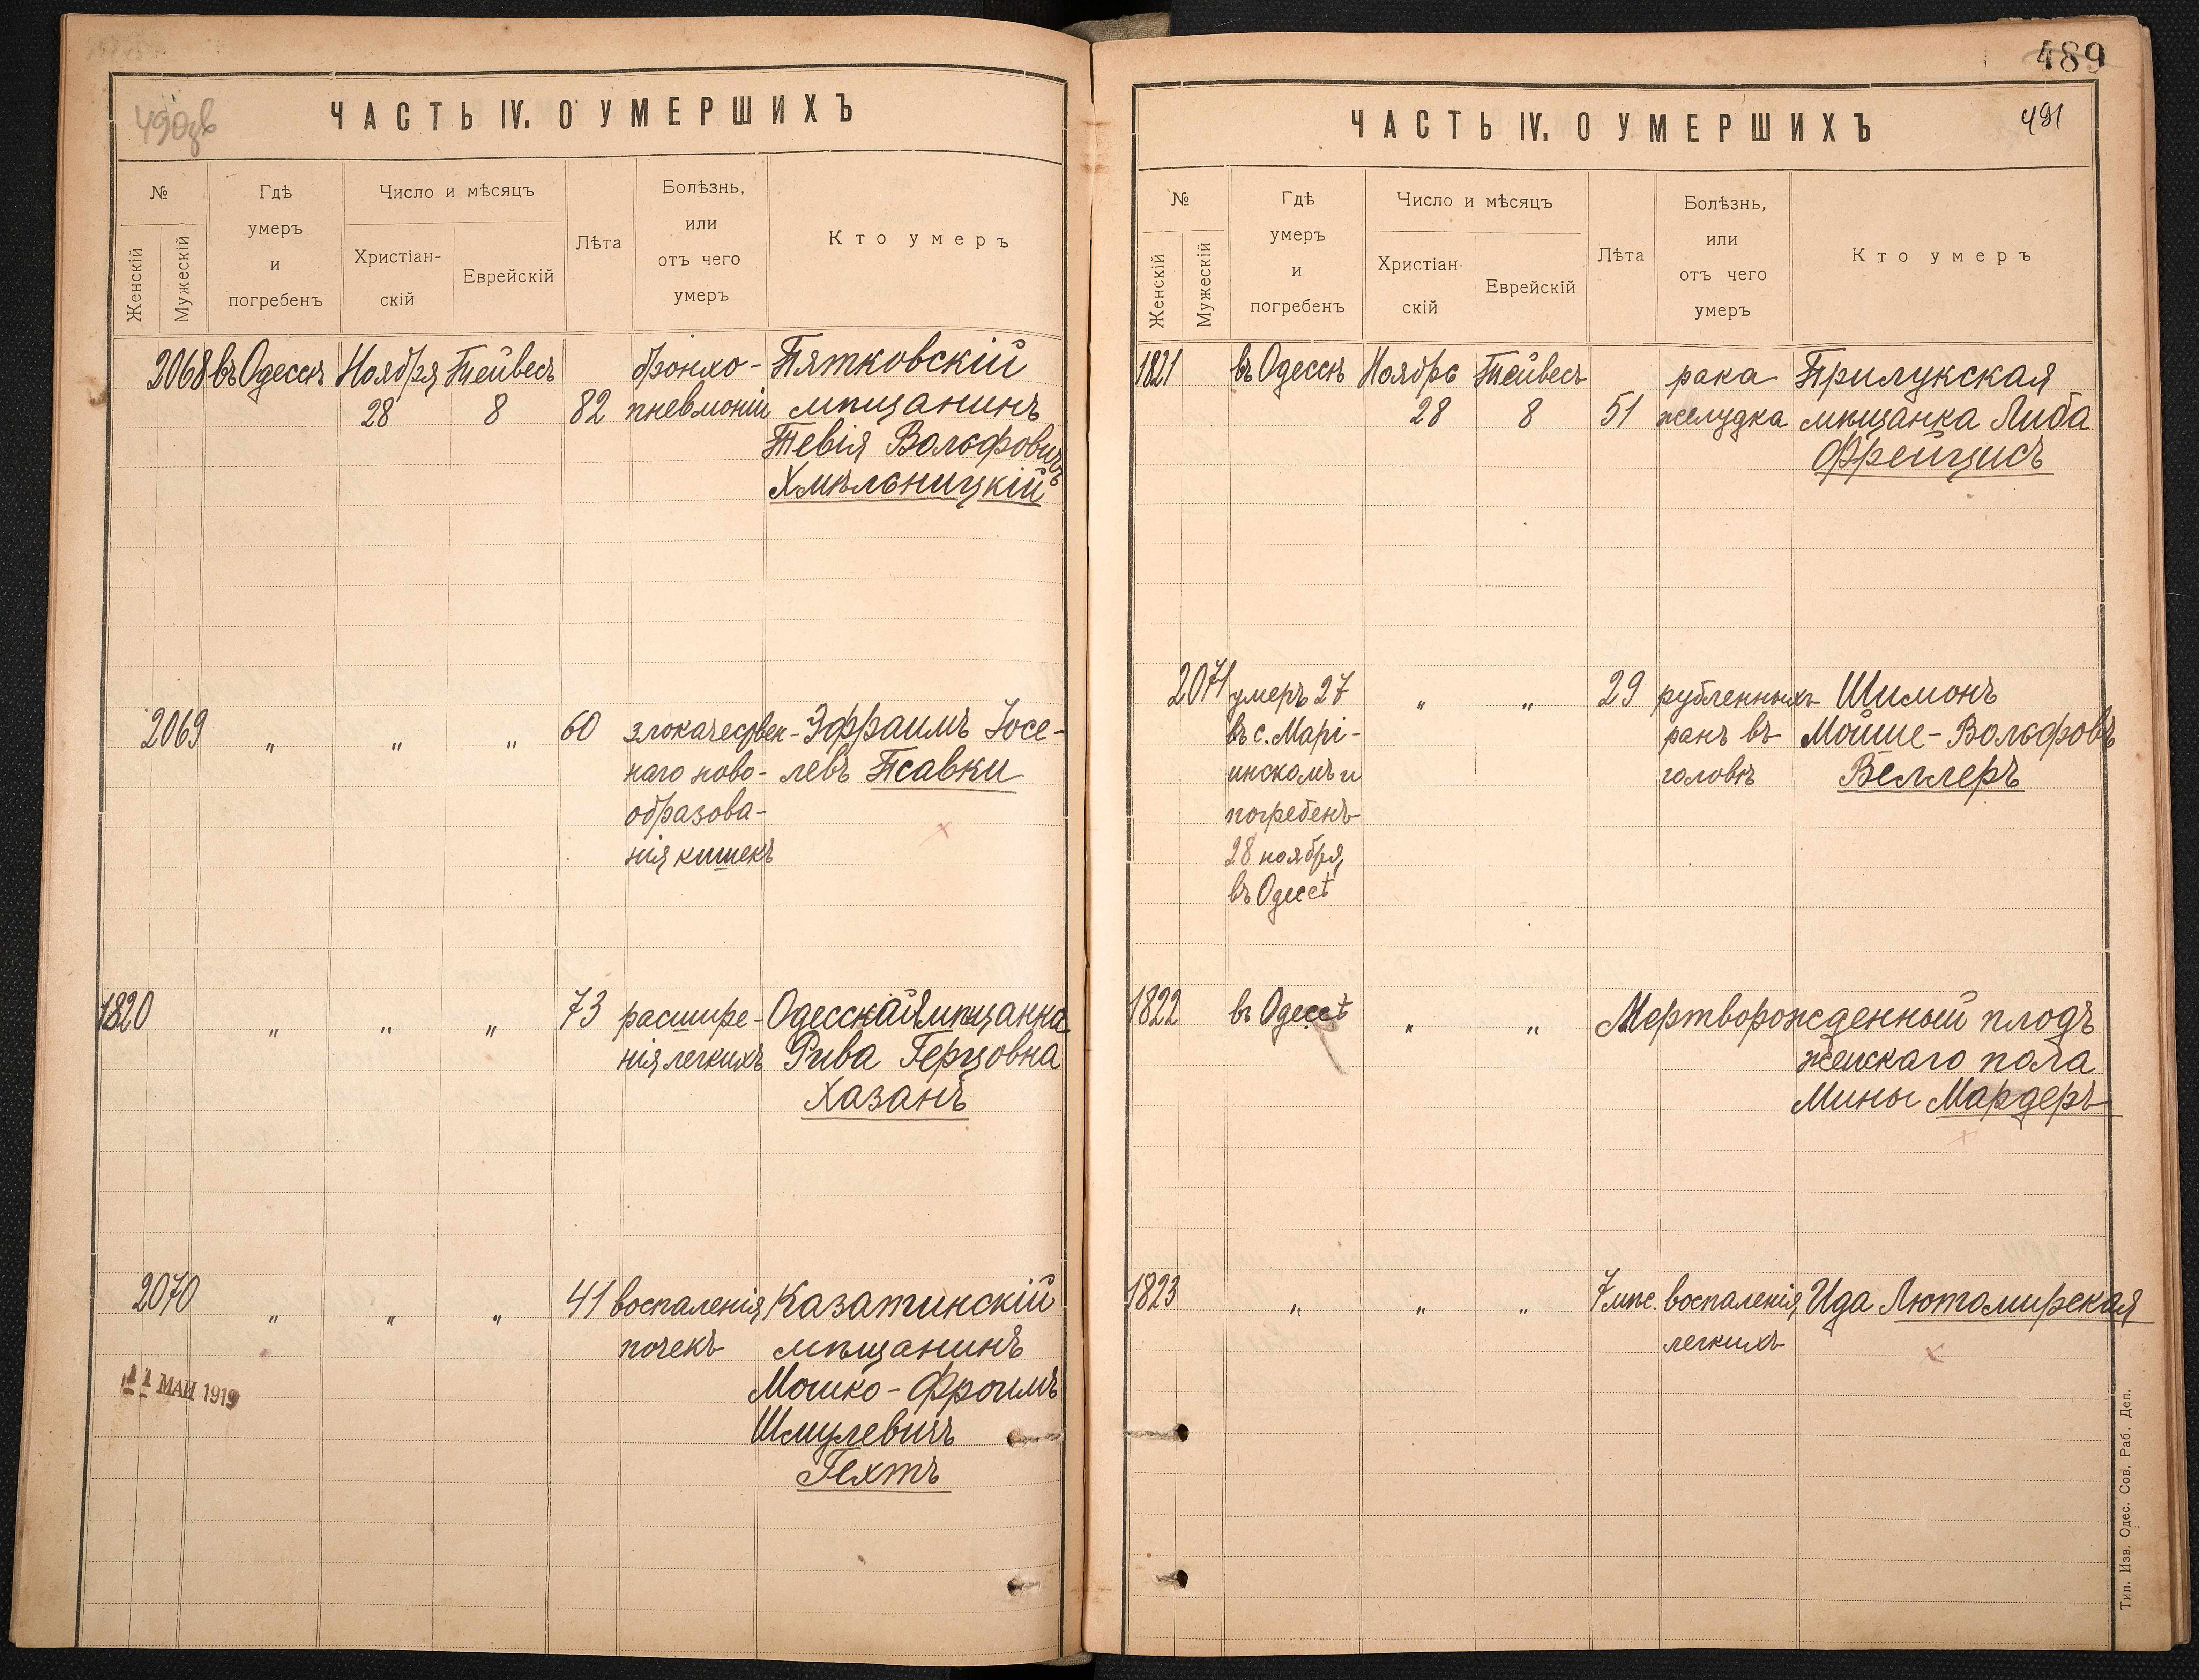 490об
ЧАСТЬ IV. О УМЕРШИХЪ
№
Женскій
Мужескій
Гдѣ
умеръ
и
погребенъ
Число и мѣсяцъ
Христіан-
скій
Еврейскій
Лѣта
Болѣзнь,
или
отъ чего
умеръ
Кто умеръ
2068 въ Одессѣ Ноября Тейвесъ бронхо- Пятковскій
28 8 82 пневмоніи мѣщанинъ
Тевія Вольфовичъ
Хмѣльницкій
2069 „ „ „ 60 злокачествен- Эфраимъ Іосе-
наго ново- левъ Псавки
образова-
нія кишекъ
1820 „ „ „ 73 расшире- Одесская мѣщанка
нія легкихъ Рива Герцовна
Хазанъ
2070 „ „ „ 41 воспаленія Казатинскій
почекъ мѣщанинъ
Мошко-Фроимъ
Шмулевичъ
Гехтъ
11 МАЙ 1919
489
491
ЧАСТЬ IV. О УМЕРШИХЪ
№
Женскій
Мужескій
Гдѣ
умеръ
и
погребенъ
Число и мѣсяцъ
Христіан-
скій
Еврейскій
Лѣта
Болѣзнь,
или
отъ чего
умеръ
Кто умеръ
1821 въ Одессѣ Ноябрь Тейвесъ рака Прилукская
28 8 51 желудка мѣщанка Либа
Френцисъ
2071 умеръ 27 „ „ 29 рубленныхъ Шимонъ
въ с. Марі- ранъ въ Мойше-Вольфовъ
инскомъ и головѣ Веллеръ
погребенъ
28 ноября
въ Одессѣ
1822 въ Одессѣ „ „ Мертворожденный плодъ
женскаго пола
Мины Мардеръ
1823 „ „ „ 7 мѣс. воспаленія Ида Лютомирская
легкихъ
Тип. Изв. Одес. Сов. Раб. Деп.